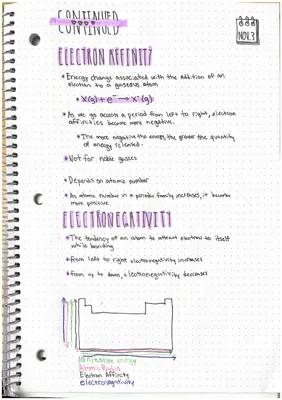 CONTINUED
CONTINUED
NOV.3
ELECTRON AFFINITY
*Energy change associated with the addition of an
electron to a gaseous atom
*X(g) + e⁻ → X⁻(g)
*As we go across a period from left to right, electron
affinities become more negative.
*The more negative the energy, the greater the quantity
of energy released.
*Not for noble gasses
*Depends on atomic number
*As atomic number in a periodic family increases, it becomes
more positive
ELECTRONEGATIVITY
*The tendency of an atom to attract electrons to itself
while bonding
*from left to right electronegativity increases
*from up to down, electronegativity decreases
ionization energy
Atomic Radius
Electron Affinity
electronegativity